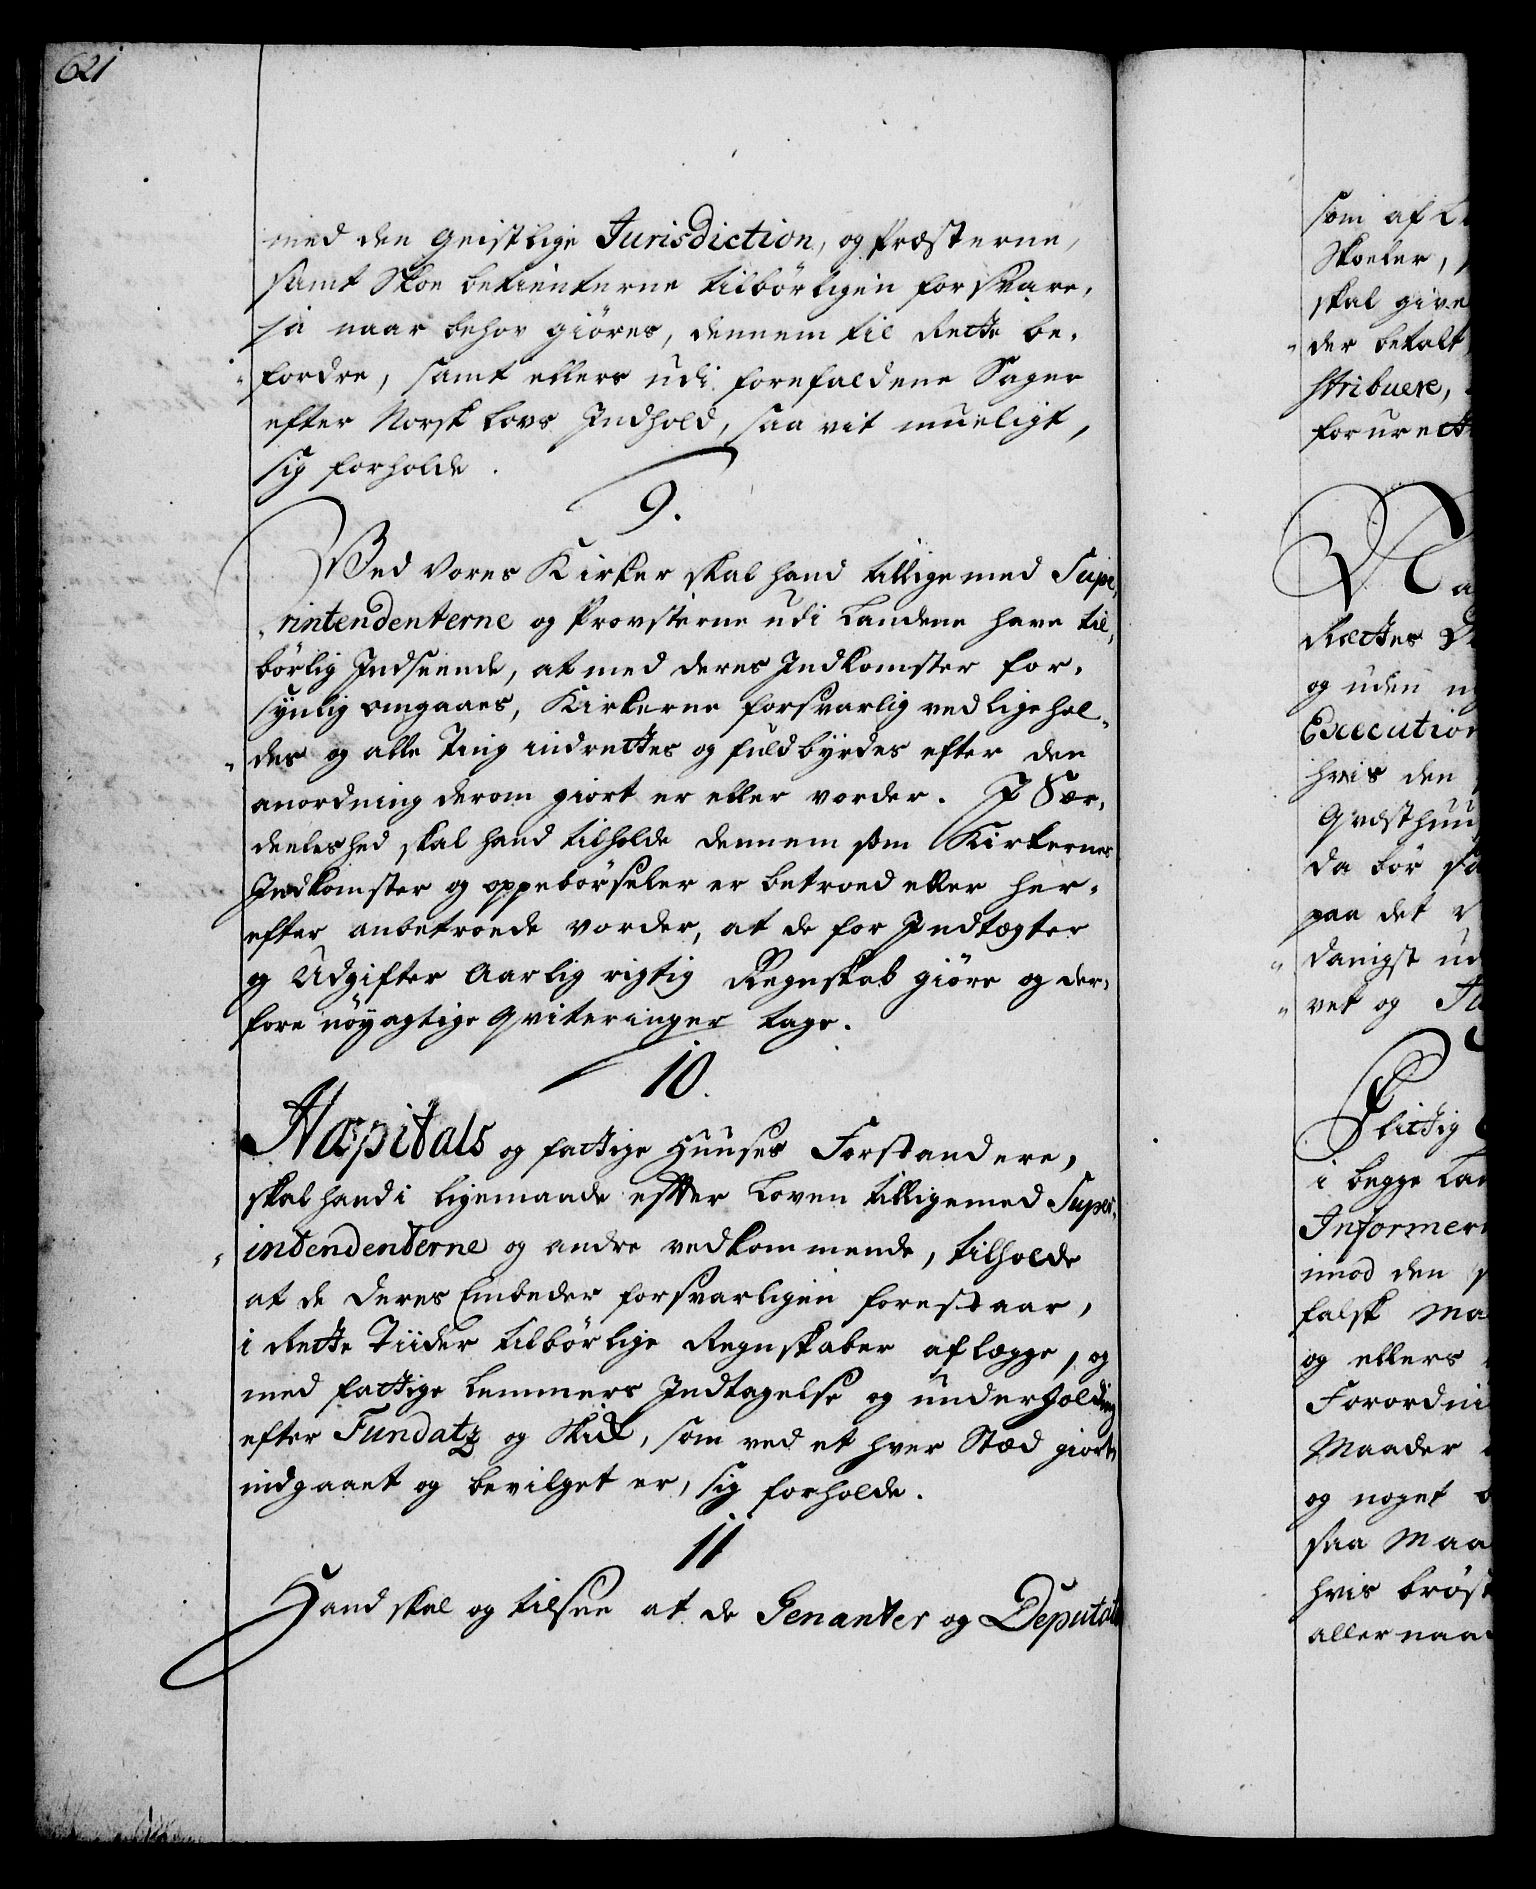 621
med den Geistlige Jurisdiction, og Præsterne,
samt Skoe betienterne tilbørligen forsvare,
ja naar behov giöres, dennem til Rette be-
"fordre, samt ellers udi forefaldene Sager
efter Norsk Lovs Indhold, saa vit mueligt,
sig forholde.
9.
Ved Vores Kirker skal hand tillige med Supe,
"rintendenterne og Provsterne udi Landene have til,
börlig Indseende, at med deres Indkomster for,
synlig omgaaes, Kirkerne forsvarlig vedligehol„
"des og alle Ting indrettes og fuldbyrdes efter den
anordning derom giort er eller vorder. I Sær,
deeleshed skal hand tilholde dennem som Kirkernes
Indkomster og oppebörseler er betroed eller her,
efter anbetroede vorder, at de for Indtægter
og Udgifter Aarlig rigtig Regnskab giöre og der,
fore nöyagtige Qviteringer tage.
10.
Hospitals og fattige Huuses Forstandere,
skal hand i ligemaade efter Loven tilligemed Super,
"intendenterne og andre vedkommende, tilholde
at de deres Embeder forsvarligen forestaar,
i Rette Tiider tilbörlige Regnskaber aflægge, og
med fattige Lemmers Indtagelse og underholding
efter Fundatz og Skick, som ved et hver Stæd giort
indgaaet og bevilget er, sig forholde.
11
Hand skal og tilsee at de Genanter og Deputat
som af L
Skoeler,
skal give
"der betalt
stribuere,
forurett
Na
Rettes
og uden
Execution
hvis den
Qvæsthuu
da bör
paa det
"danigst ud
"vet og
Flittig
i begge Lan
Informer
imod den
falsk Ma
og ellers
Forordni
Maader
og noget
saa Maa
hvis bröst
aller naa